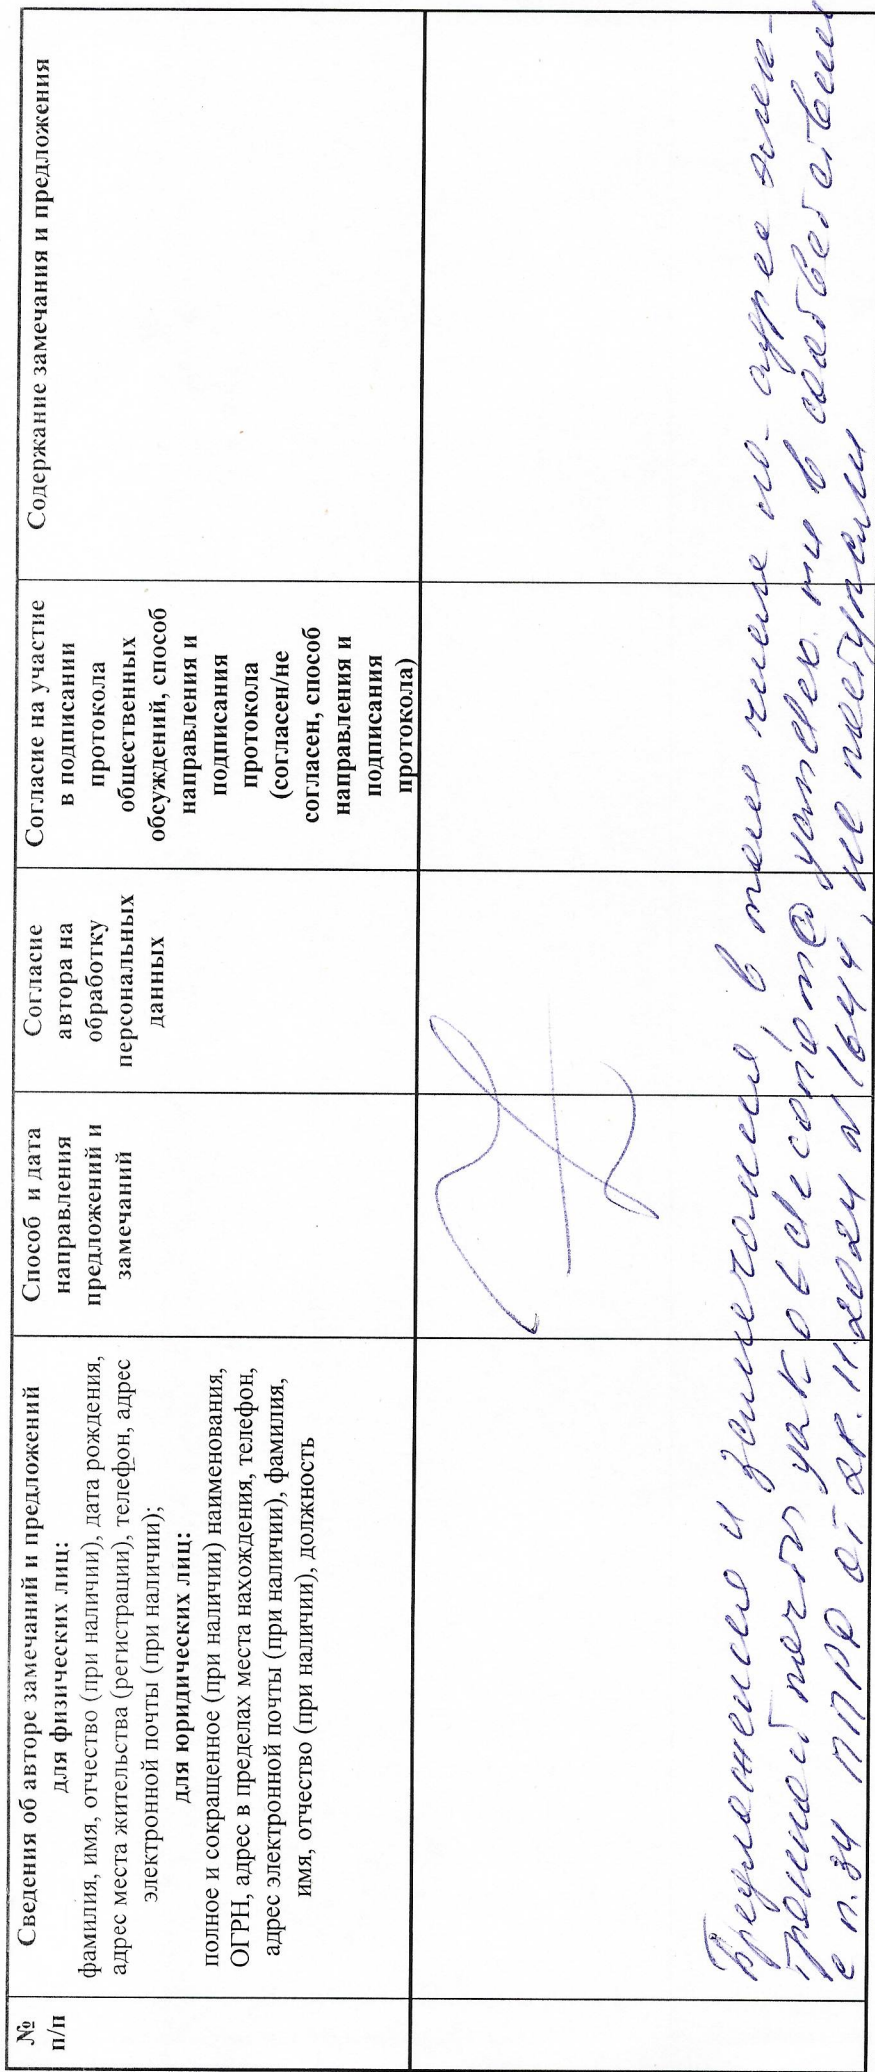 №
п/п
Сведения об авторе замечаний и предложений
для физических лиц:
фамилия, имя, отчество (при наличии), дата рождения,
адрес места жительства (регистрации), телефон, адрес
электронной почты (при наличии);
для юридических лиц:
полное и сокращенное (при наличии) наименования,
ОГРН, адрес в пределах места нахождения, телефон,
адрес электронной почты (при наличии), фамилия,
имя, отчество (при наличии), должность
Способ и дата
направления
предложений и
замечаний
Согласие
автора на
обработку
персональных
данных
Согласие на участие
в подписании
протокола
общественных
обсуждений, способ
направления и
подписания
протокола
(согласен/не
согласен, способ
направления и
подписания
протокола)
Содержание замечания и предложения
Предложения и замечания, в том числе по адрес элек-
тронной почты
в соответствии
с п. 34 ППРФ от 28.11.2024 N 1644, не поступали